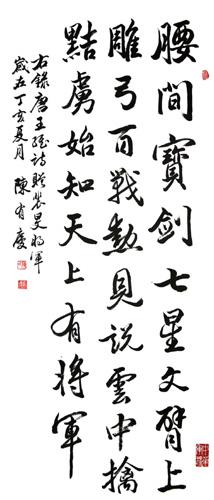 腰間寶劍七星文臂上
雕弓百戰勲見說雲中擒
黠虜始知天上有將軍
右錄唐王維詩贈裴旻將軍
歲在丁亥夏月 陳有慶